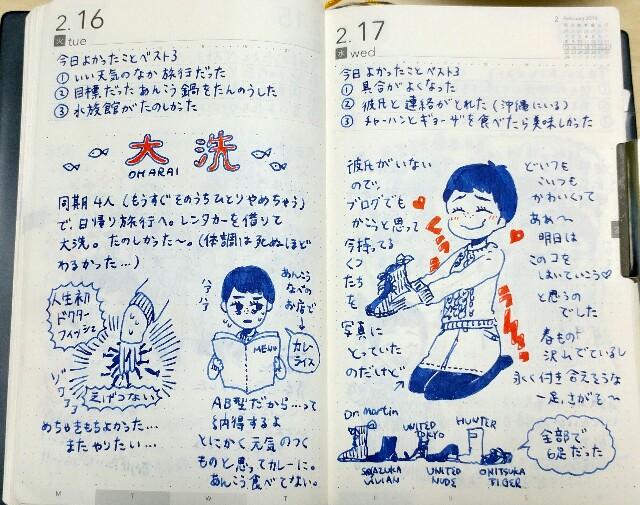 2.16
火 tue
今日よかったことベスト3
① いい天気のなか旅行だった
② 目標だったあんこう鍋をたんのうした
③ 水族館がたのしかった
大洗
OHARAI
同期4人(もうすぐそのうちひとりやめちゃう)
で、日帰り旅行へ。レンタカーを借りて
大洗。たのしかった〜。(体調は死ぬほど
わるかった…)
人生初
ドクター
フィッシュ
ゾワァァ
足げっつない
めちゃきもちよかった…
またやりたい…
あんこう
なべの
お店で
MENU
カレー
ライス
AB型だから…って
納得するよ
とにかく元気のつく
ものと思ってカレーに。
あんこう食べてない。
M
T
W
T
2.17
水 wed
2 February 2016
今日よかったことベスト3
① 具合がよくなった
② 彼氏と連絡がとれた(沖縄にいる)
③ チャーハンとギョーザを食べたら美味しかった
彼氏がいない
ので、
ブログでも
かこうと思って
今持ってる
くつ
たち
を
写真に
とっていた
のだけど
どいつも
こいつも
かわいくって
ああ〜
明日は
このコを
はいていこう♡
と思うの
でした
春もの
沢山でているし
永く付き合えそうな
一足、さがそ〜
Dr. martin
UNITED
TOKYO
HUNTER
VIVIAN
UNITED
NUDE
ONITSUKA
TIGER
全部で
6足だった